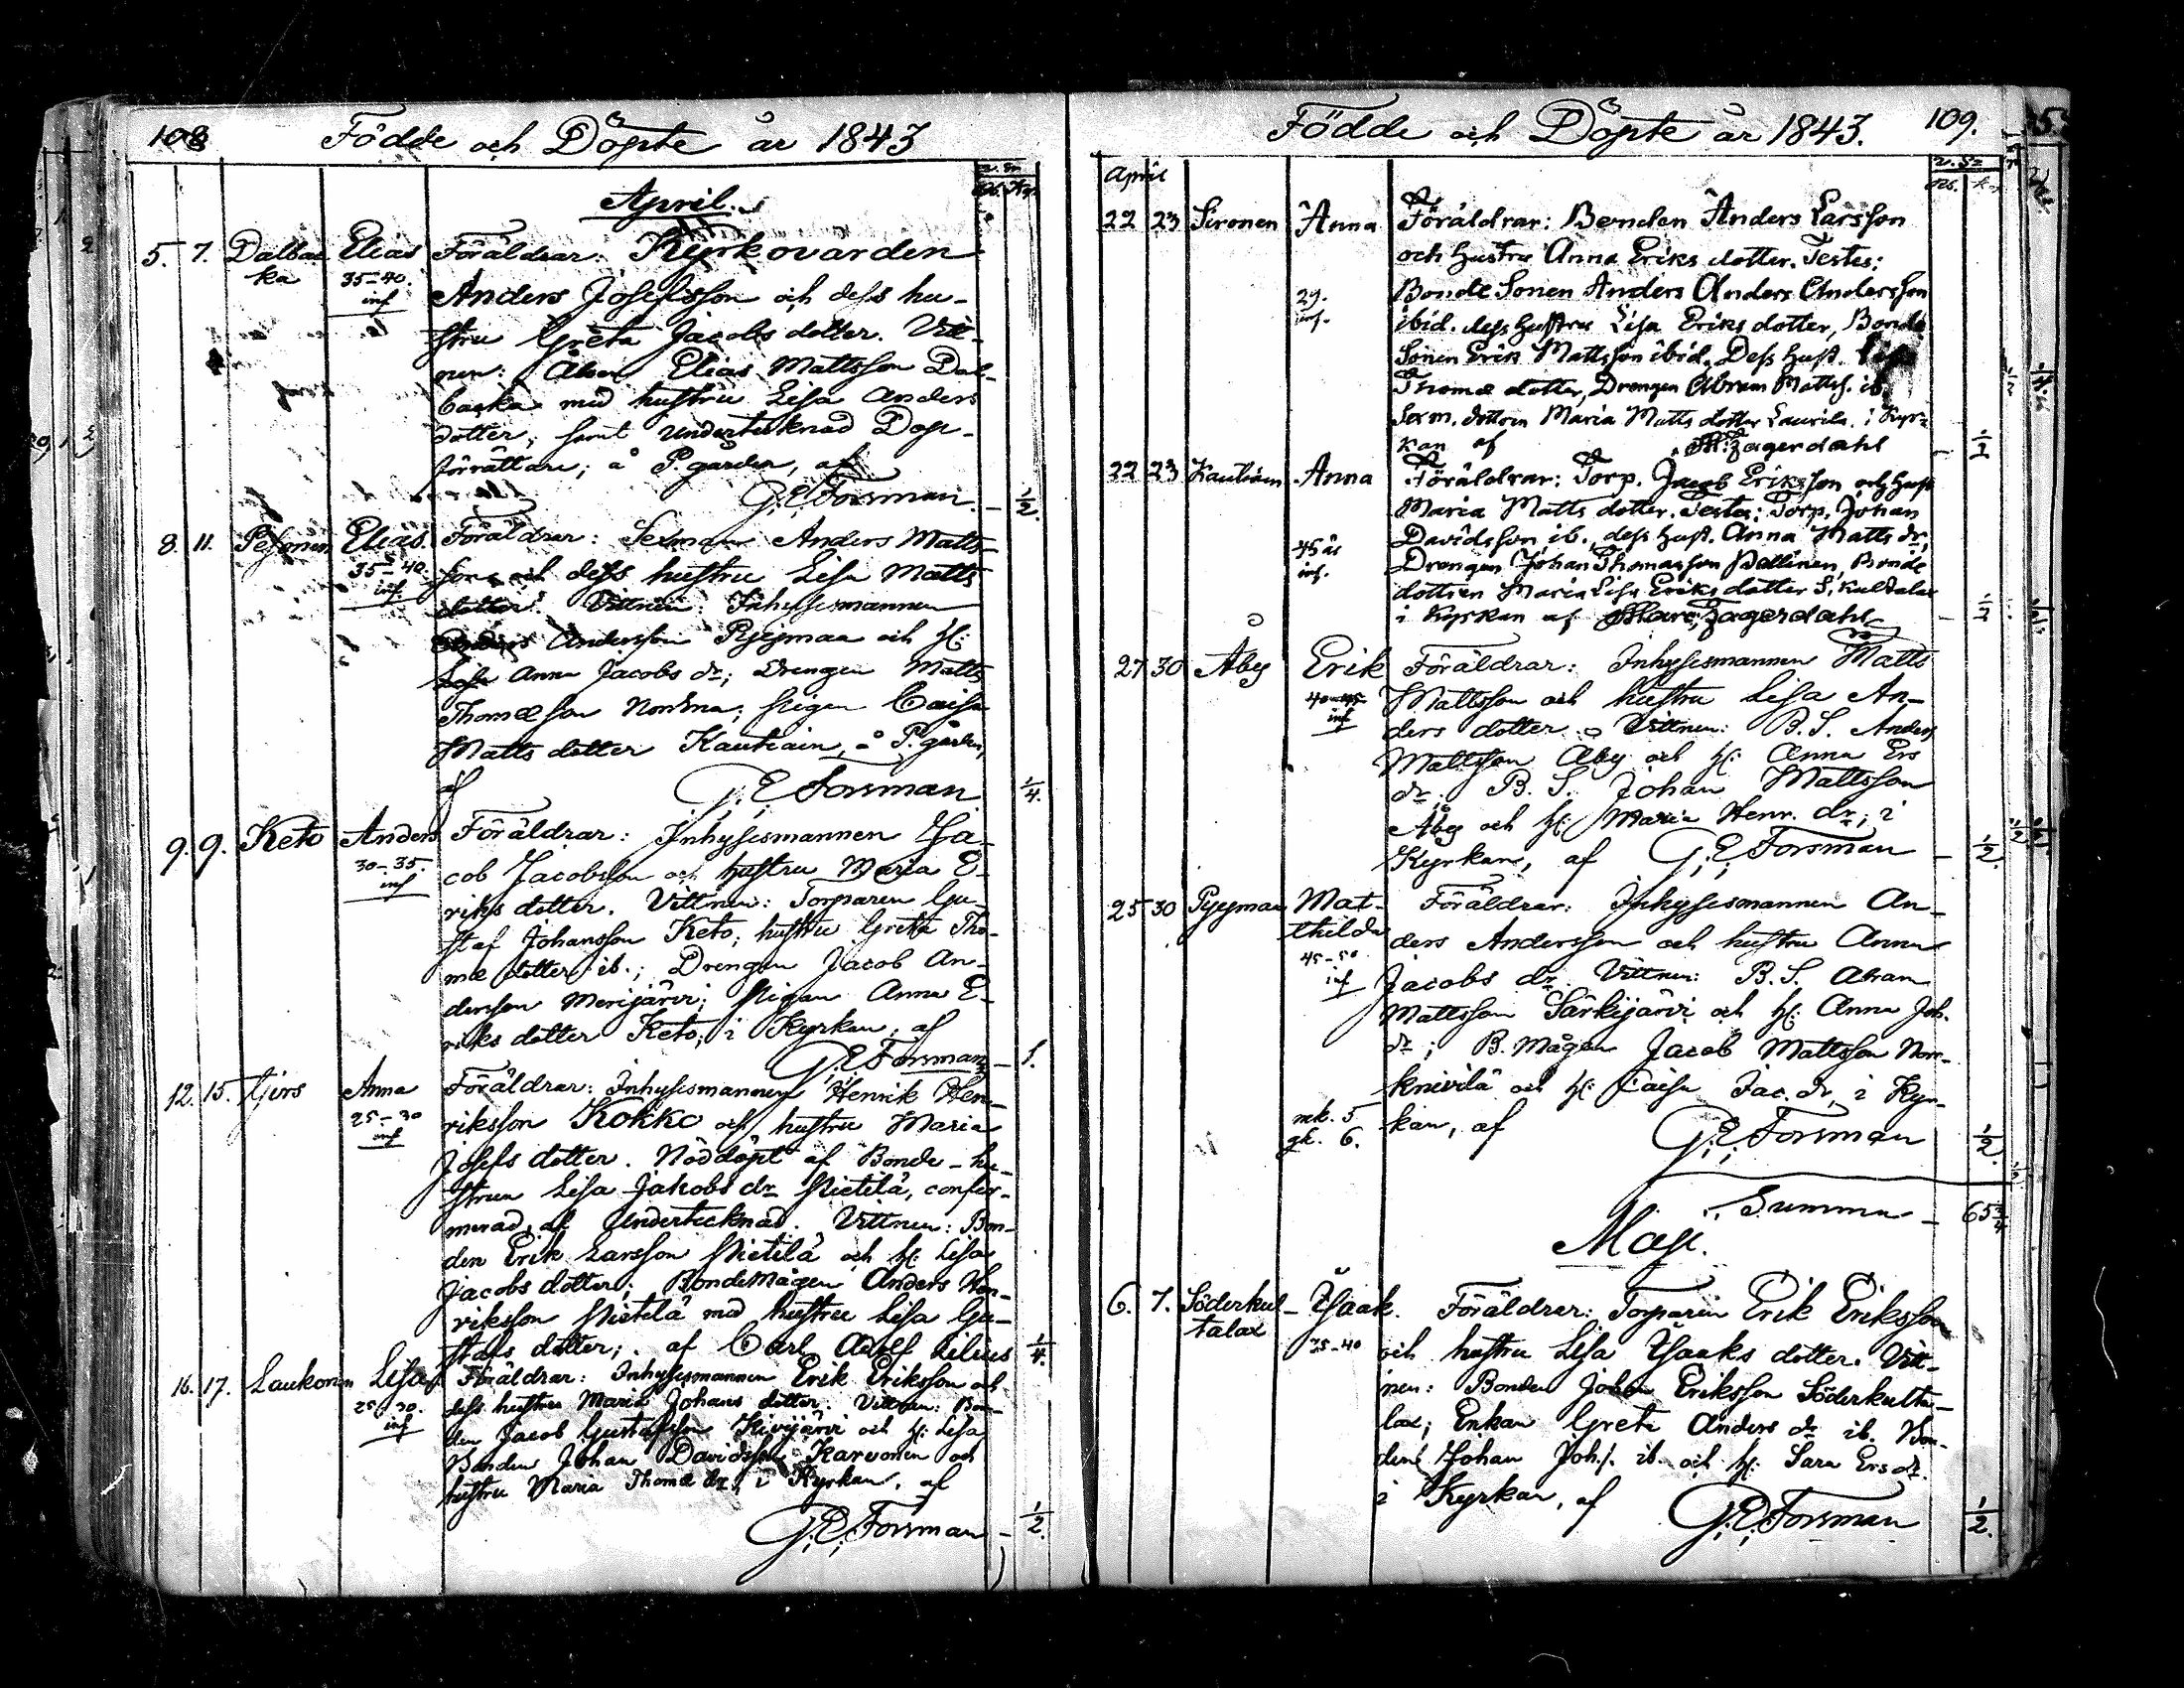 108
Födde och Döpte år 1843
April.
5. 7. Dalbac Elias Föräldrar: Kyrkovärden
ka 35-40. inf Anders Josefsson och dess hu-
stru Greta Jacobs dotter. Vitt-
nen: Elias Mattsson Dal-
backa med hustru Lisa Anders
dotter, samt undertecknad Dop-
förrättare; å P. gården, af
G. E. Forsman. 1/2.
8. 11. Pesonen Elias Föräldrar: Sexman Anders Matts-
35-40. inf. son och dess hustru Lisa Matts
dotter. Vittnen: Inhysesmannen
Andersson Pyymaa och H:
Anna Jacobs dr; Drengen Matts
Thomæson Norkna; Pigan Caisa
Matts dotter Kautiain, å P. gården,
af G. E. Forsman 1/4.
9. 9. Keto Anders Föräldrar: Inhysesmannen Ja-
30-35. inf cob Jacobsson och hustru Maria E-
riks dotter. Vittnen: Torparen Gu-
staf Johansson Keto; hustru Greta Tho-
mæ dotter ib.; Drengen Jacob An-
dersson Merijärvi; Pigan Anna E-
riks dotter Keto; i Kyrkan, af
G. E. Forsman 1.
12. 15. Anna Föräldrar: Inhysesmannen Henrik Hen-
25-30 inf riksson Kokko och hustru Maria
Josefs dotter. Nöddöpt af Bonde-hu-
strun Lisa Jakobs dr Pietilä, confir-
merad af Undertecknad. Vittnen: Bon-
den Erik Larsson Pietilä och H: Lisa
Jacobs dotter; Bondemågen Anders Hen-
riksson Pietilä med hustru Lisa Gu-
stafs dotter; af Carl Adolf Lilius 1/4.
16. 17. Laukonen Lisa Föräldrar: Inhysesmannen Erik Eriksson och
25-30. inf dess hustru Maria Johans dotter. Vittnen: Bon-
den Jacob Gustafsson Kivijärvi och H: Lisa
Bonden Johan Davidsson Karvonen och
hustru Maria Thomæ dr, i Kyrkan, af
G. E. Forsman 1/2.
Födde och Döpte år 1843. 109.
April
22 23 Sironen Anna Föräldrar: Bonden Anders Larsson
och Hustru Anna Eriks dotter. Testes:
29. inf. Bonde Sonen Anders Anders Andersson
ibid. dess Hustru Lisa Eriks dotter, Bonde
Sonen Erik Mattsson ibid. Dess Hust.
Thomæ dotter, Drengen Abram Matts. ib.
Sexm. dottren Maria Matts dotter Laurila. i Kyr-
kan af Zagerdahl 1/2
22 23 Kautiain Anna Föräldrar: Torp. Jacob Eriksson och Hust
Maria Matts dotter. Testes: Torp. Johan
45 år inf. Davidsson ib., dess Hust. Anna Matts dr,
Drengen Johan Thomasson Pallinen, Bonde
dottren Maria Lisa Eriks dotter S. kultalax
i Kyrkan af Zagerdahl 1/2
27 30 Åby Erik Föräldrar: Inhysesmannen Matts
40-45 inf Mattsson och hustru Lisa An-
ders dotter. Vittnen: B. S. Anders
Mattsson Åby och H: Anna Ers
dr; B. S. Johan Mattsson
Åby och H: Maria Henr. dr; i
Kyrkan, af G. E. Forsman 1/2.
25 30 Pyymaa Mat- Föräldrar: Inhysesmannen An-
thilda ders Andersson och hustru Anna
45-50 inf Jacobs dr. Vittnen: B. S. Abram
Mattsson Särkijärvi och H: Anna Joh.
dr; B. Mågen Jacob Mattsson Norr-
knivilä och H: Caisa Jac. dr, i Kyr-
mk. 5 kan, af G. E. Forsman 1/2.
gk. 6.
Summa 65 3/4
Maji.
6. 7. Söderkul- Isaak. Föräldrar: Torparen Erik Eriksson
talax 35-40 och hustru Lisa Isaaks dotter. Vitt-
nen: Bonden Johan Eriksson Söderkulta-
lax; Enkan Greta Anders dr ib. Bon-
den Johan Joh.s. ib. och H: Sara Ers dr.
i Kyrkan, af G. E. Forsman 1/2.